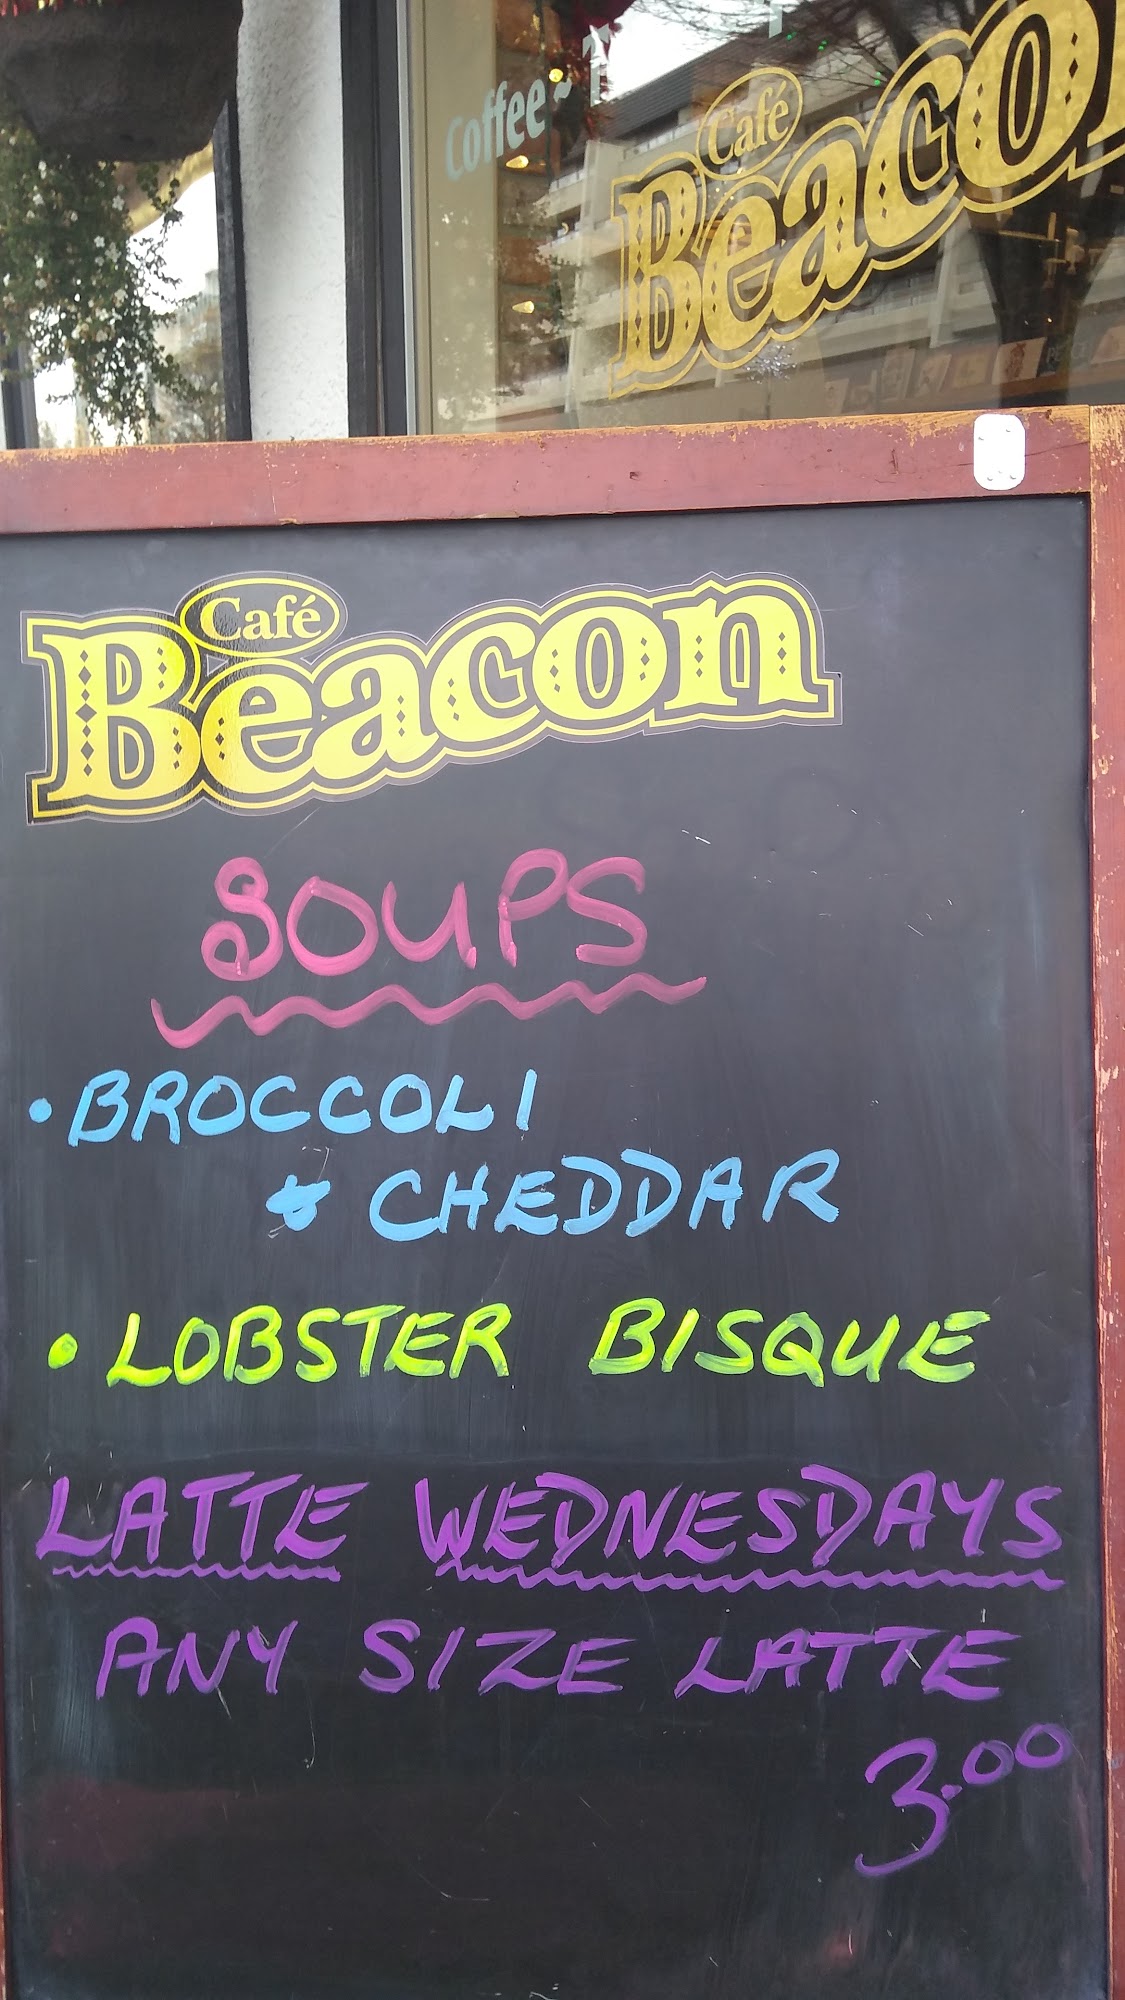 Coffee ~ T
Café
Beacon
Café
Beacon
SOUPS
• BROCCOLI
& CHEDDAR
• LOBSTER BISQUE
LATTE WEDNESDAYS
ANY SIZE LATTE
3.00